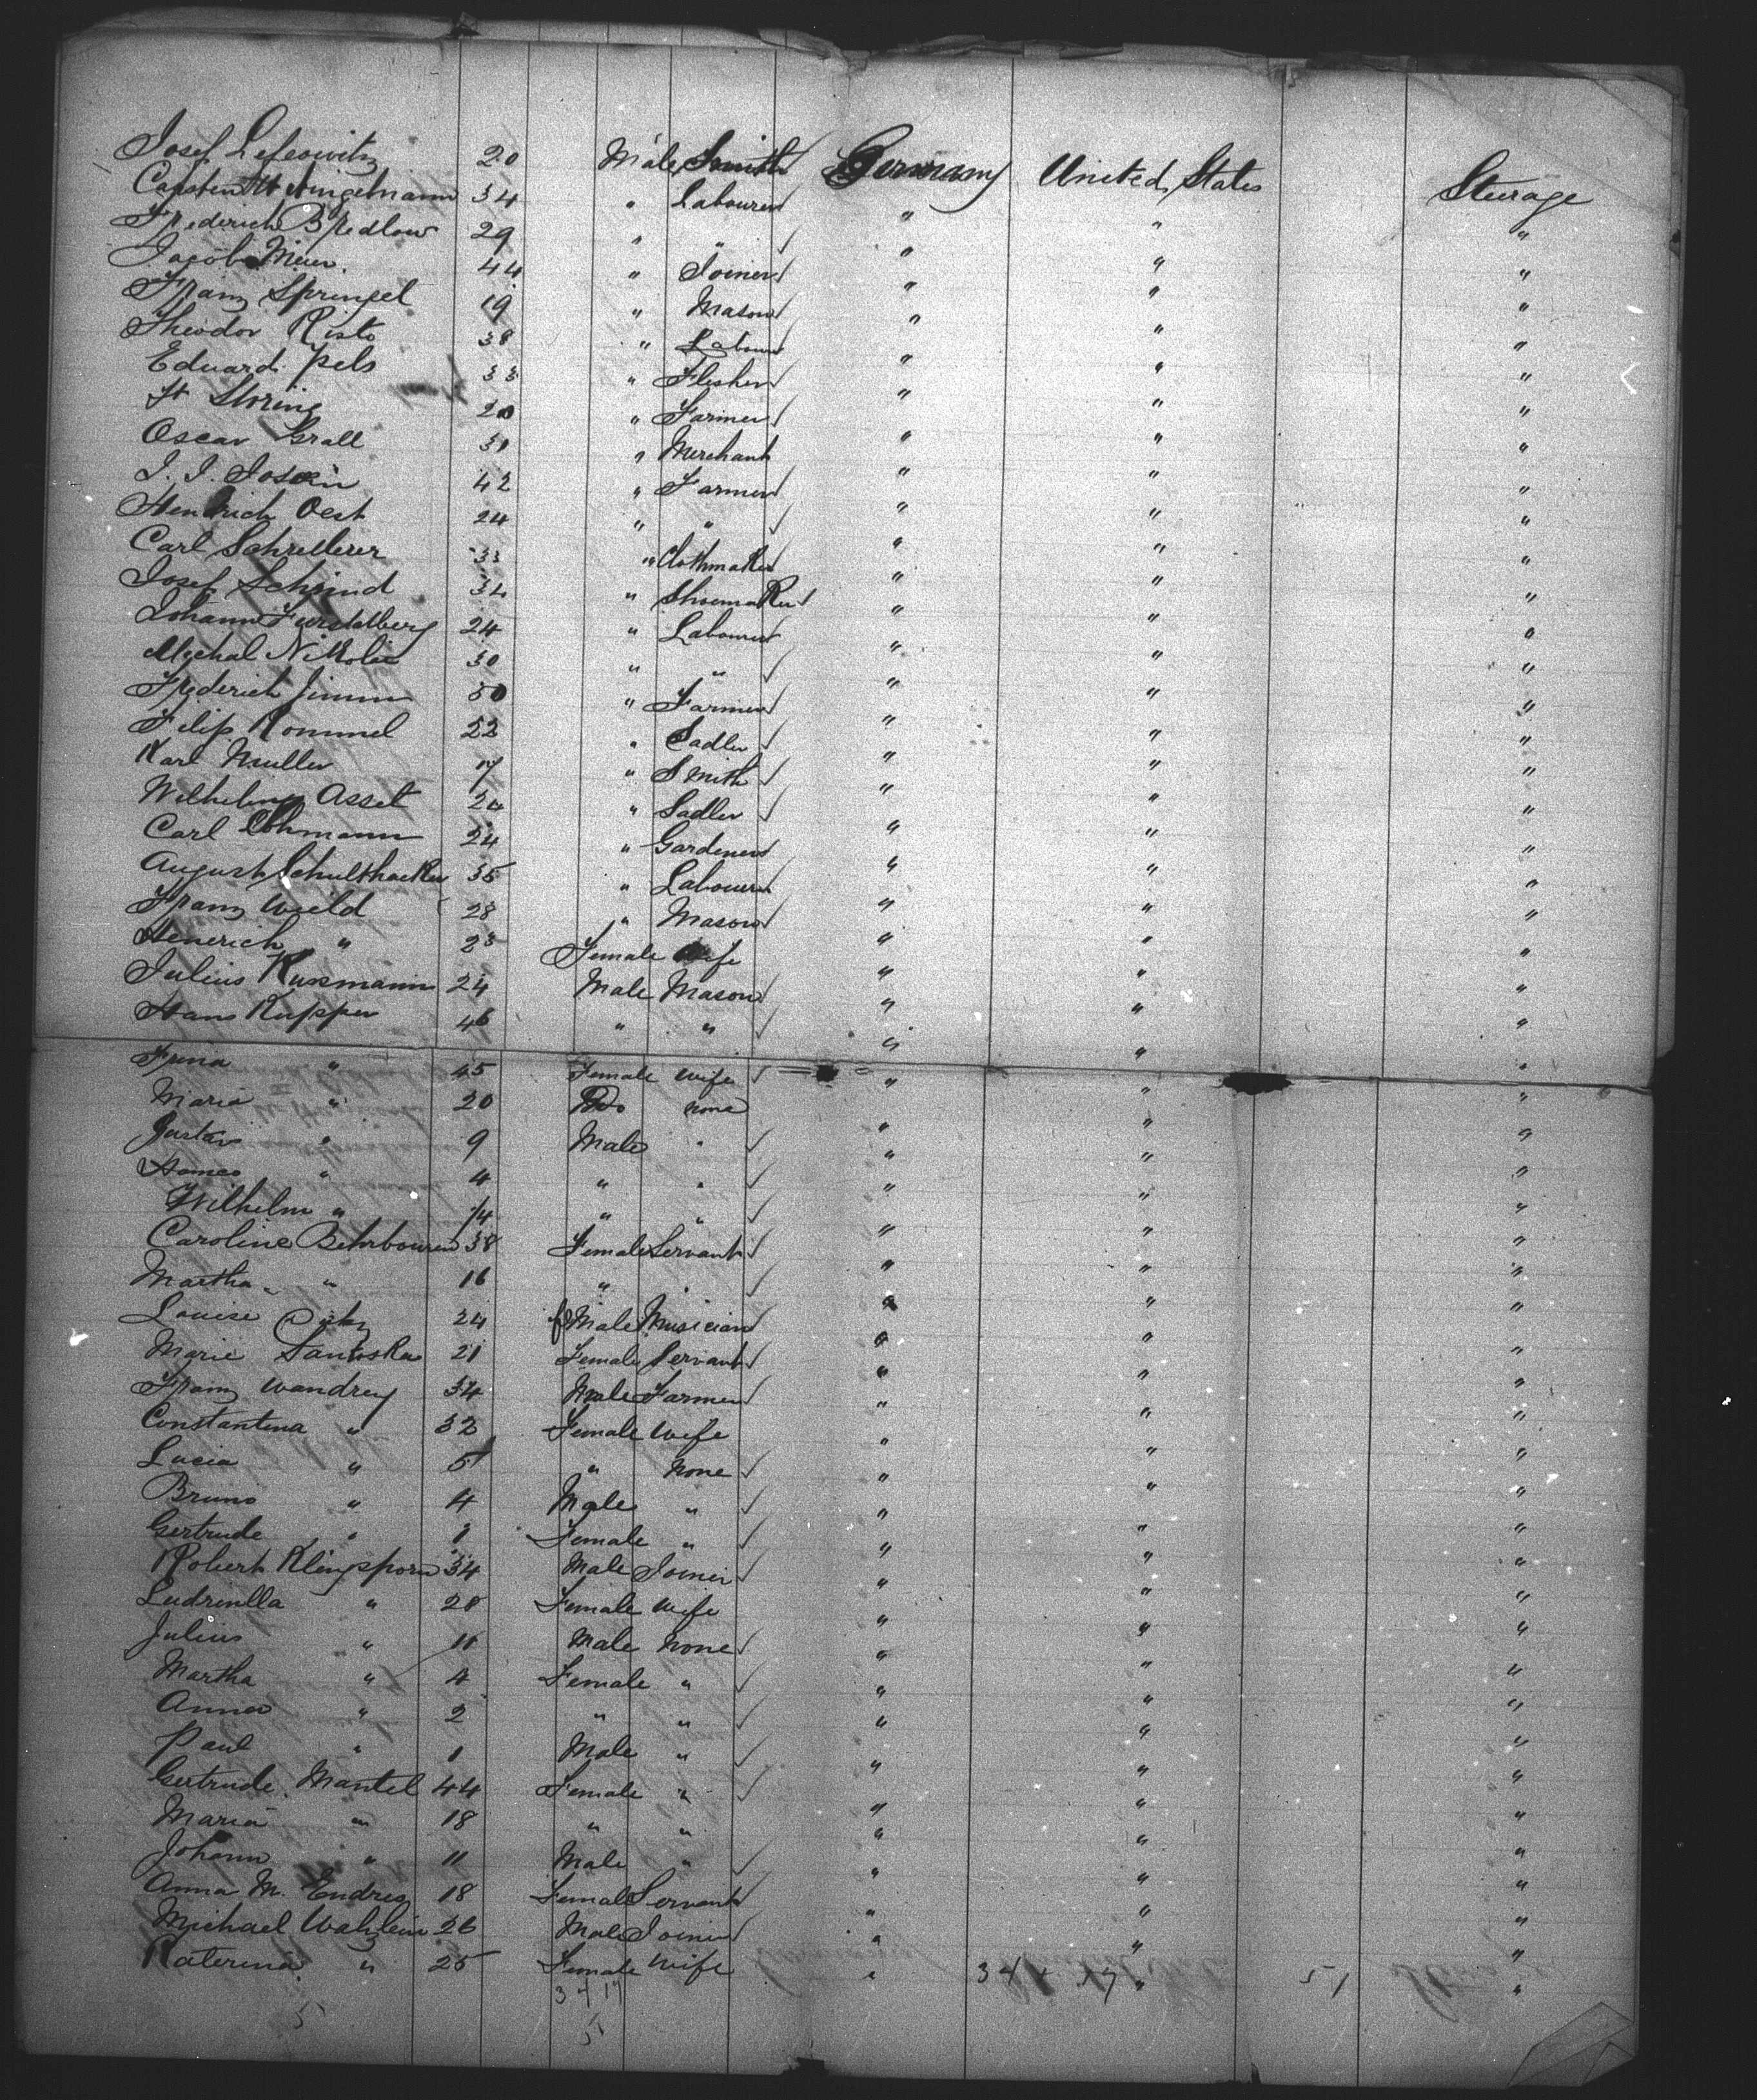 Josef Lefeowitz 20 Male Smith Germany United States Steurage
Capsten Wingelmann 34 " Labourer " " "
Frederich Bredlow 29 " " " " "
Jacob Meier. 44 " Joiner " " "
Franz Springel 19 " Mason " " "
Theodor Risto 38 " Labour " " "
Eduard Pels 33 " Flesher " " "
H Storing 20 " Farmer " " "
Oscar Grall 31 " Merchant " " "
J. J. 42 " Farmer " " "
Hendrich Oest 24 " " " " "
Carl Schrellerer 33 " Clothmaker " " "
Josef Schmind 34 " Shoemaker " " "
Johann 24 " Labourer " " "
Mychal Nikolie 30 " " " " "
Frederich Jimm 50 " Farmer " " "
Filip Rommel 22 " Sadler " " "
Karl Muller 17 " Smith " " "
Wilhelm Asset 24 " Sadler " " "
Carl Lohmann 24 " Gardener " " "
August Schulthacker 35 " Labourer " " "
Franz Weild 28 " Mason " " "
Henerich " 23 Female Wife " " "
Julius Kussmann 24 Male Mason " " "
Hans Kupper 46 " " " " "
" 45 Female Wife " " "
Maria " 20 Do none " " "
Gustav " 9 Male " " " "
" 4 " " " " "
Wilhelm " 1/4 " " " " "
Caroline Behrbouren 38 Female Servant " " "
Martha " 16 " " " " "
Louise 24 feMale Musician " " "
Marie Santoska 21 Female Servant " " "
Franz Wandrey 34 Male Farmer " " "
Constantina " 32 Female Wife " " "
Lucia " 5 " none " " "
Bruno " 4 Male " " " "
Gertrude " 1 Female " " " "
Robert Klingsporn 34 Male Joiner " " "
Ludrinlla " 28 Female Wife " " "
Julius " 11 Male none " " "
Martha " 4 Female " " " "
Anna " 2 " " " " "
Paul " 1 Male " " " "
Gertrude Mantel 44 Female " " " "
Maria " 18 " " " " "
Johann " 11 Male " " " "
Anna M. Endres 18 Female Servant " " "
Michael Wahlein 26 Male Joiner " " "
Katerina " 25 Female Wife " 34 17 " 51 "
34 17
5 5